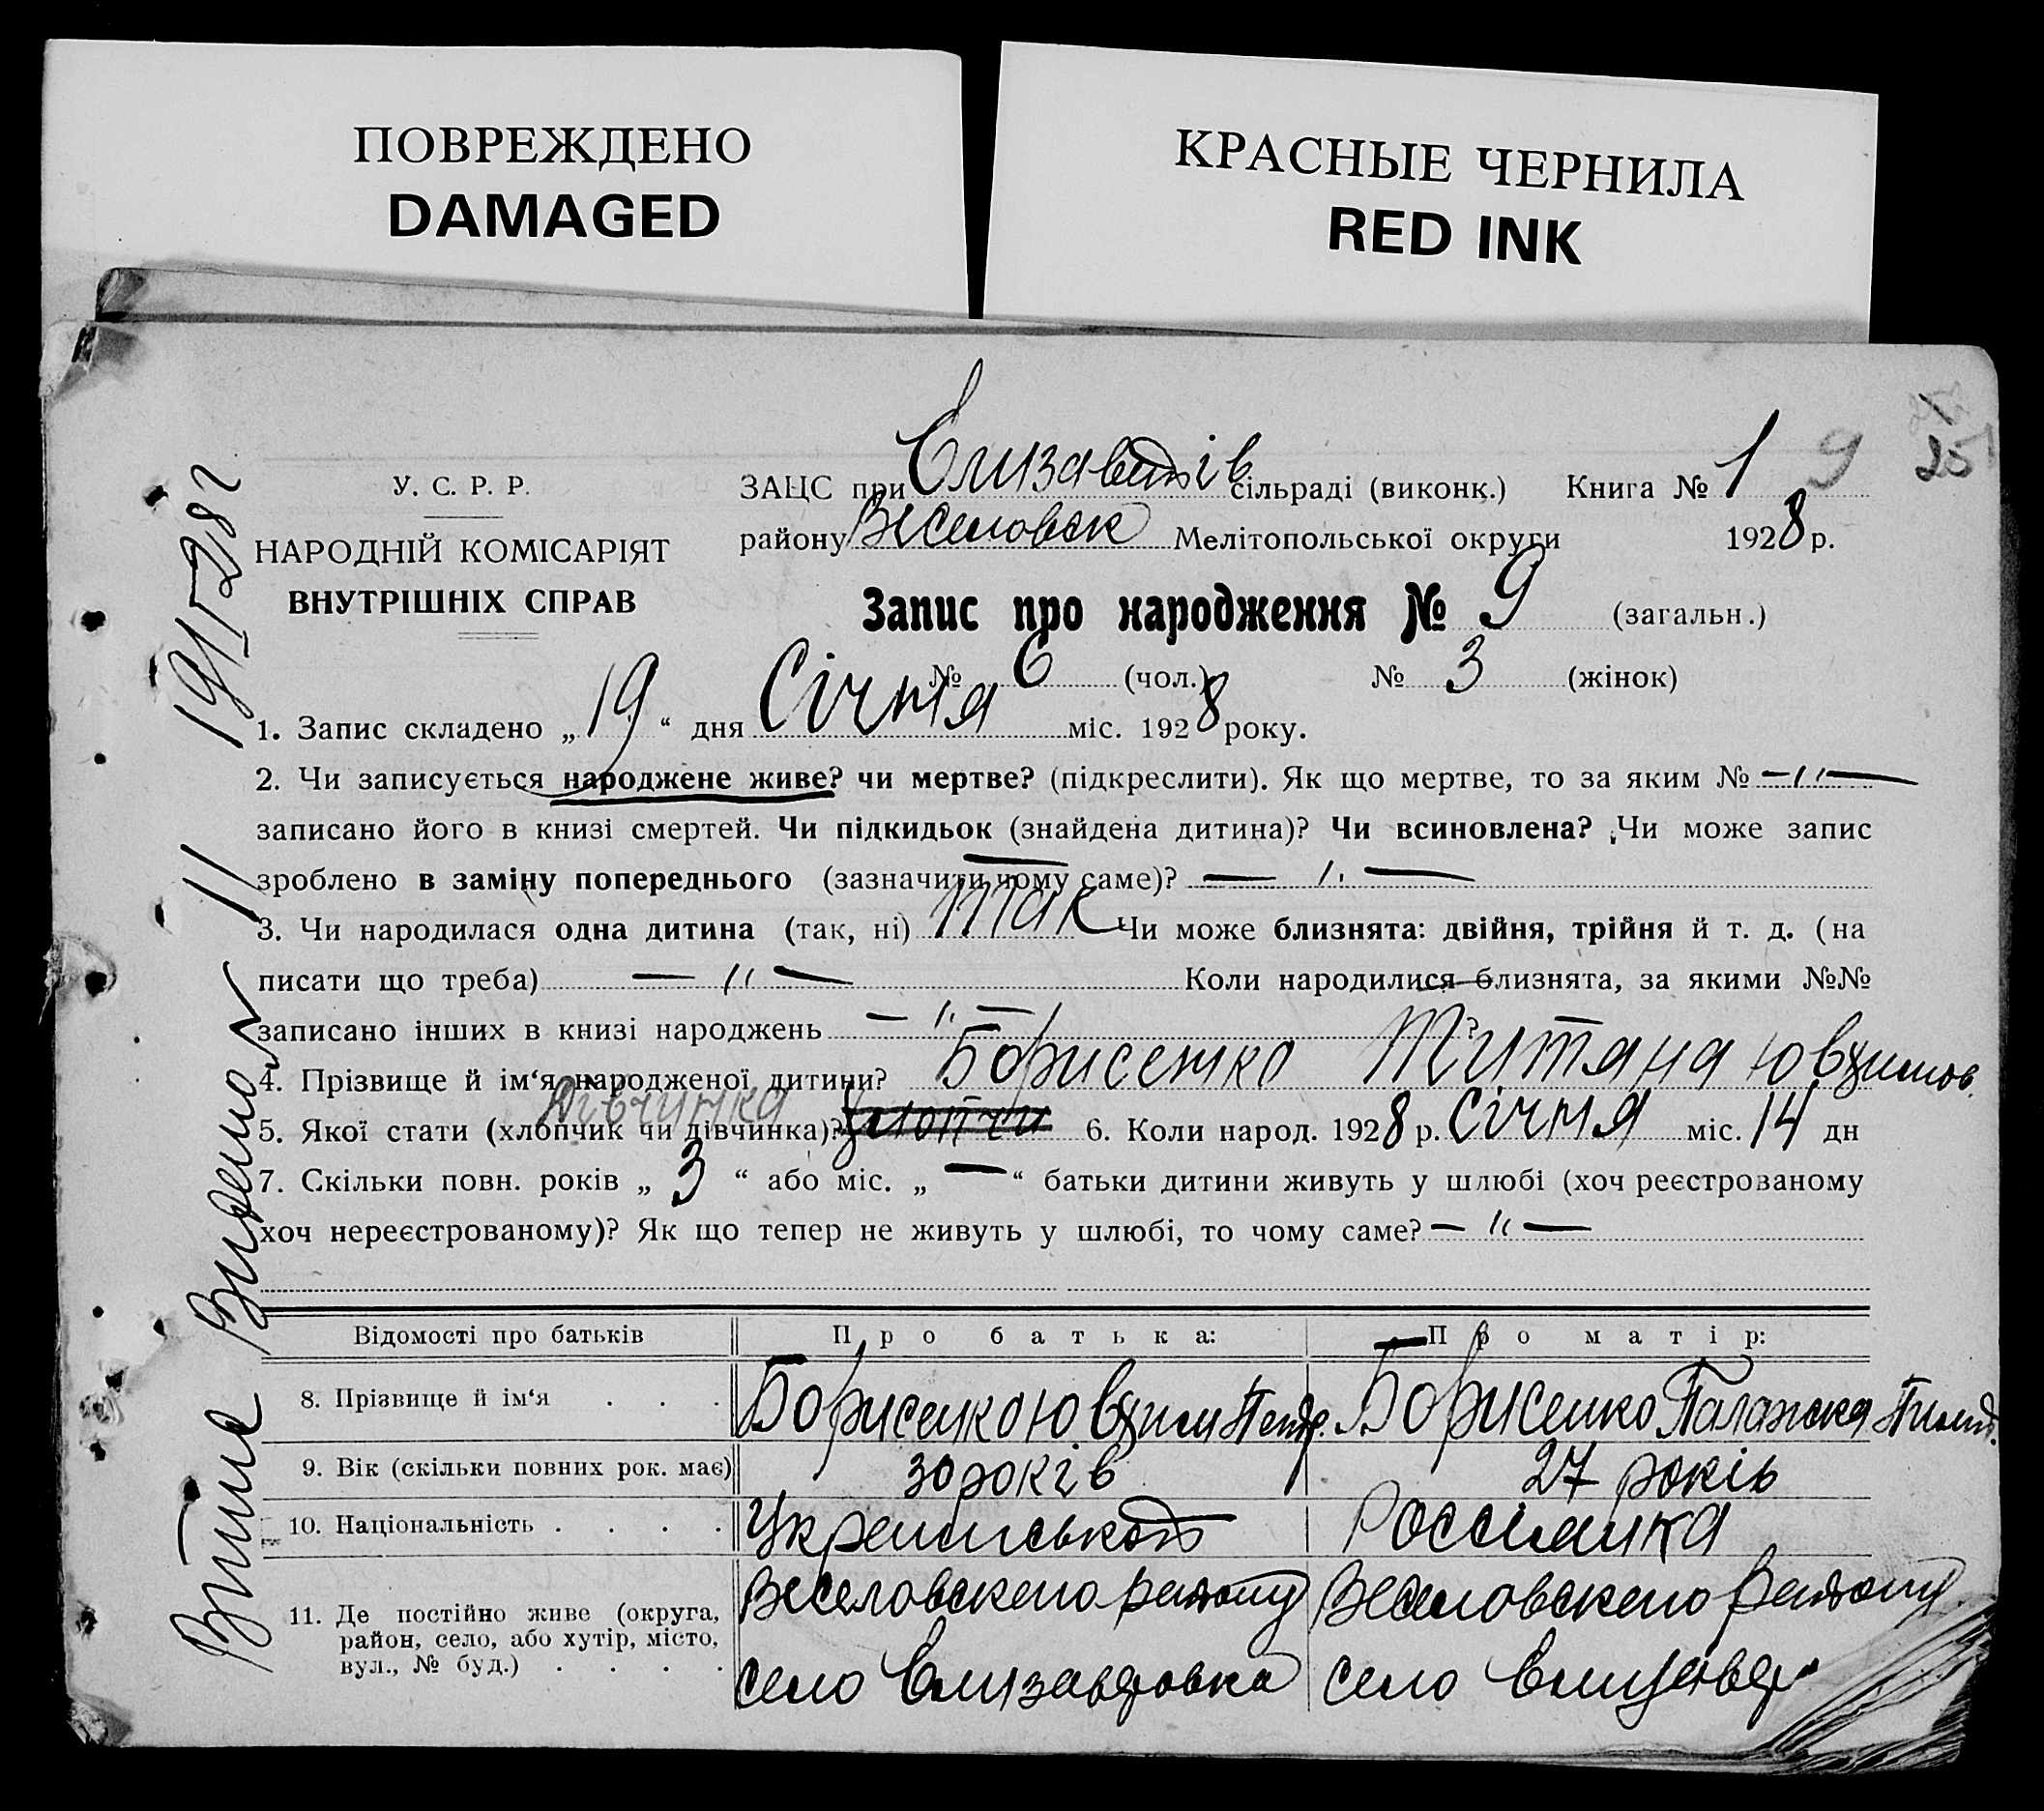 ПОВРЕЖДЕНО
DAMAGED
КРАСНЫЕ ЧЕРНИЛА
RED INK
У. С. Р. Р.
НАРОДНІЙ КОМІСАРІЯТ
ВНУТРІШНІХ СПРАВ
ЗАЦС при Єлизаветів сільраді (виконк.) Книга № 1 9 25
району Веселовск Мелітопольської округи 1928 р.
Запис про народження № 9 (загальн.)
№ 6 (чол.) № 3 (жінок)
1. Запис складено „19“ дня Січня міс. 1928 року.
2. Чи записується народжене живе? чи мертве? (підкреслити). Як що мертве, то за яким № —"—
записано його в книзі смертей. Чи підкидьок (знайдена дитина)? Чи всиновлена? Чи може запис
зроблено в заміну попереднього (зазначити чому саме)? — " —
3. Чи народилася одна дитина (так, ні) так Чи може близнята: двійня, трійня й т. д. (на
писати що треба) — " — Коли народилися близнята, за якими №№
записано інших в книзі народжень — " — ?
4. Прізвище й ім‘я народженої дитини? Борисенко Титяна Ювхимов.
дівчинка
5. Якої стати (хлопчик чи дівчинка)? хлопчи 6. Коли народ. 1928 р. Січня міс. 14 дн
7. Скільки повн. років „3“ або міс. „—“ батьки дитини живуть у шлюбі (хоч реєстрованому
хоч нереєстрованому)? Як що тепер не живуть у шлюбі, то чому саме? — " —
Відомості про батьків Про батька: Про матір:
8. Прізвище й ім‘я . . . Борисенко Ювхим Петр. Борисенко Палажка Тимоф.
9. Вік (скільки повних рок. має) 30 років 27 років
10. Національність . . . . Українськой Россиянка
11. Де постійно живе (округа, район, село, або хутір, місто, вул., № буд.) . . . . Веселовского району Веселовского району
село Єлизаведовка село Єлизавед
Витяг Видано 11 19/I-28 г